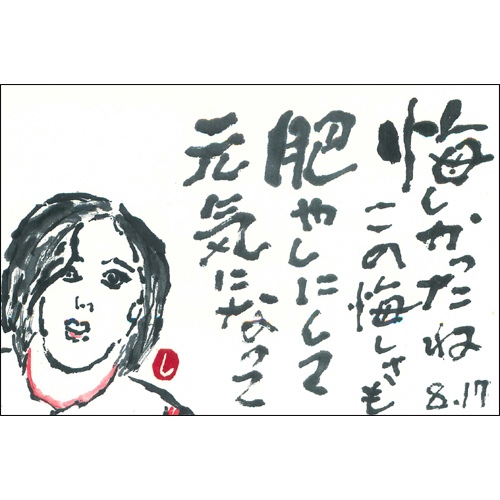 悔しかったね
この悔しさも
肥やしにして
元気になって
8.17
し